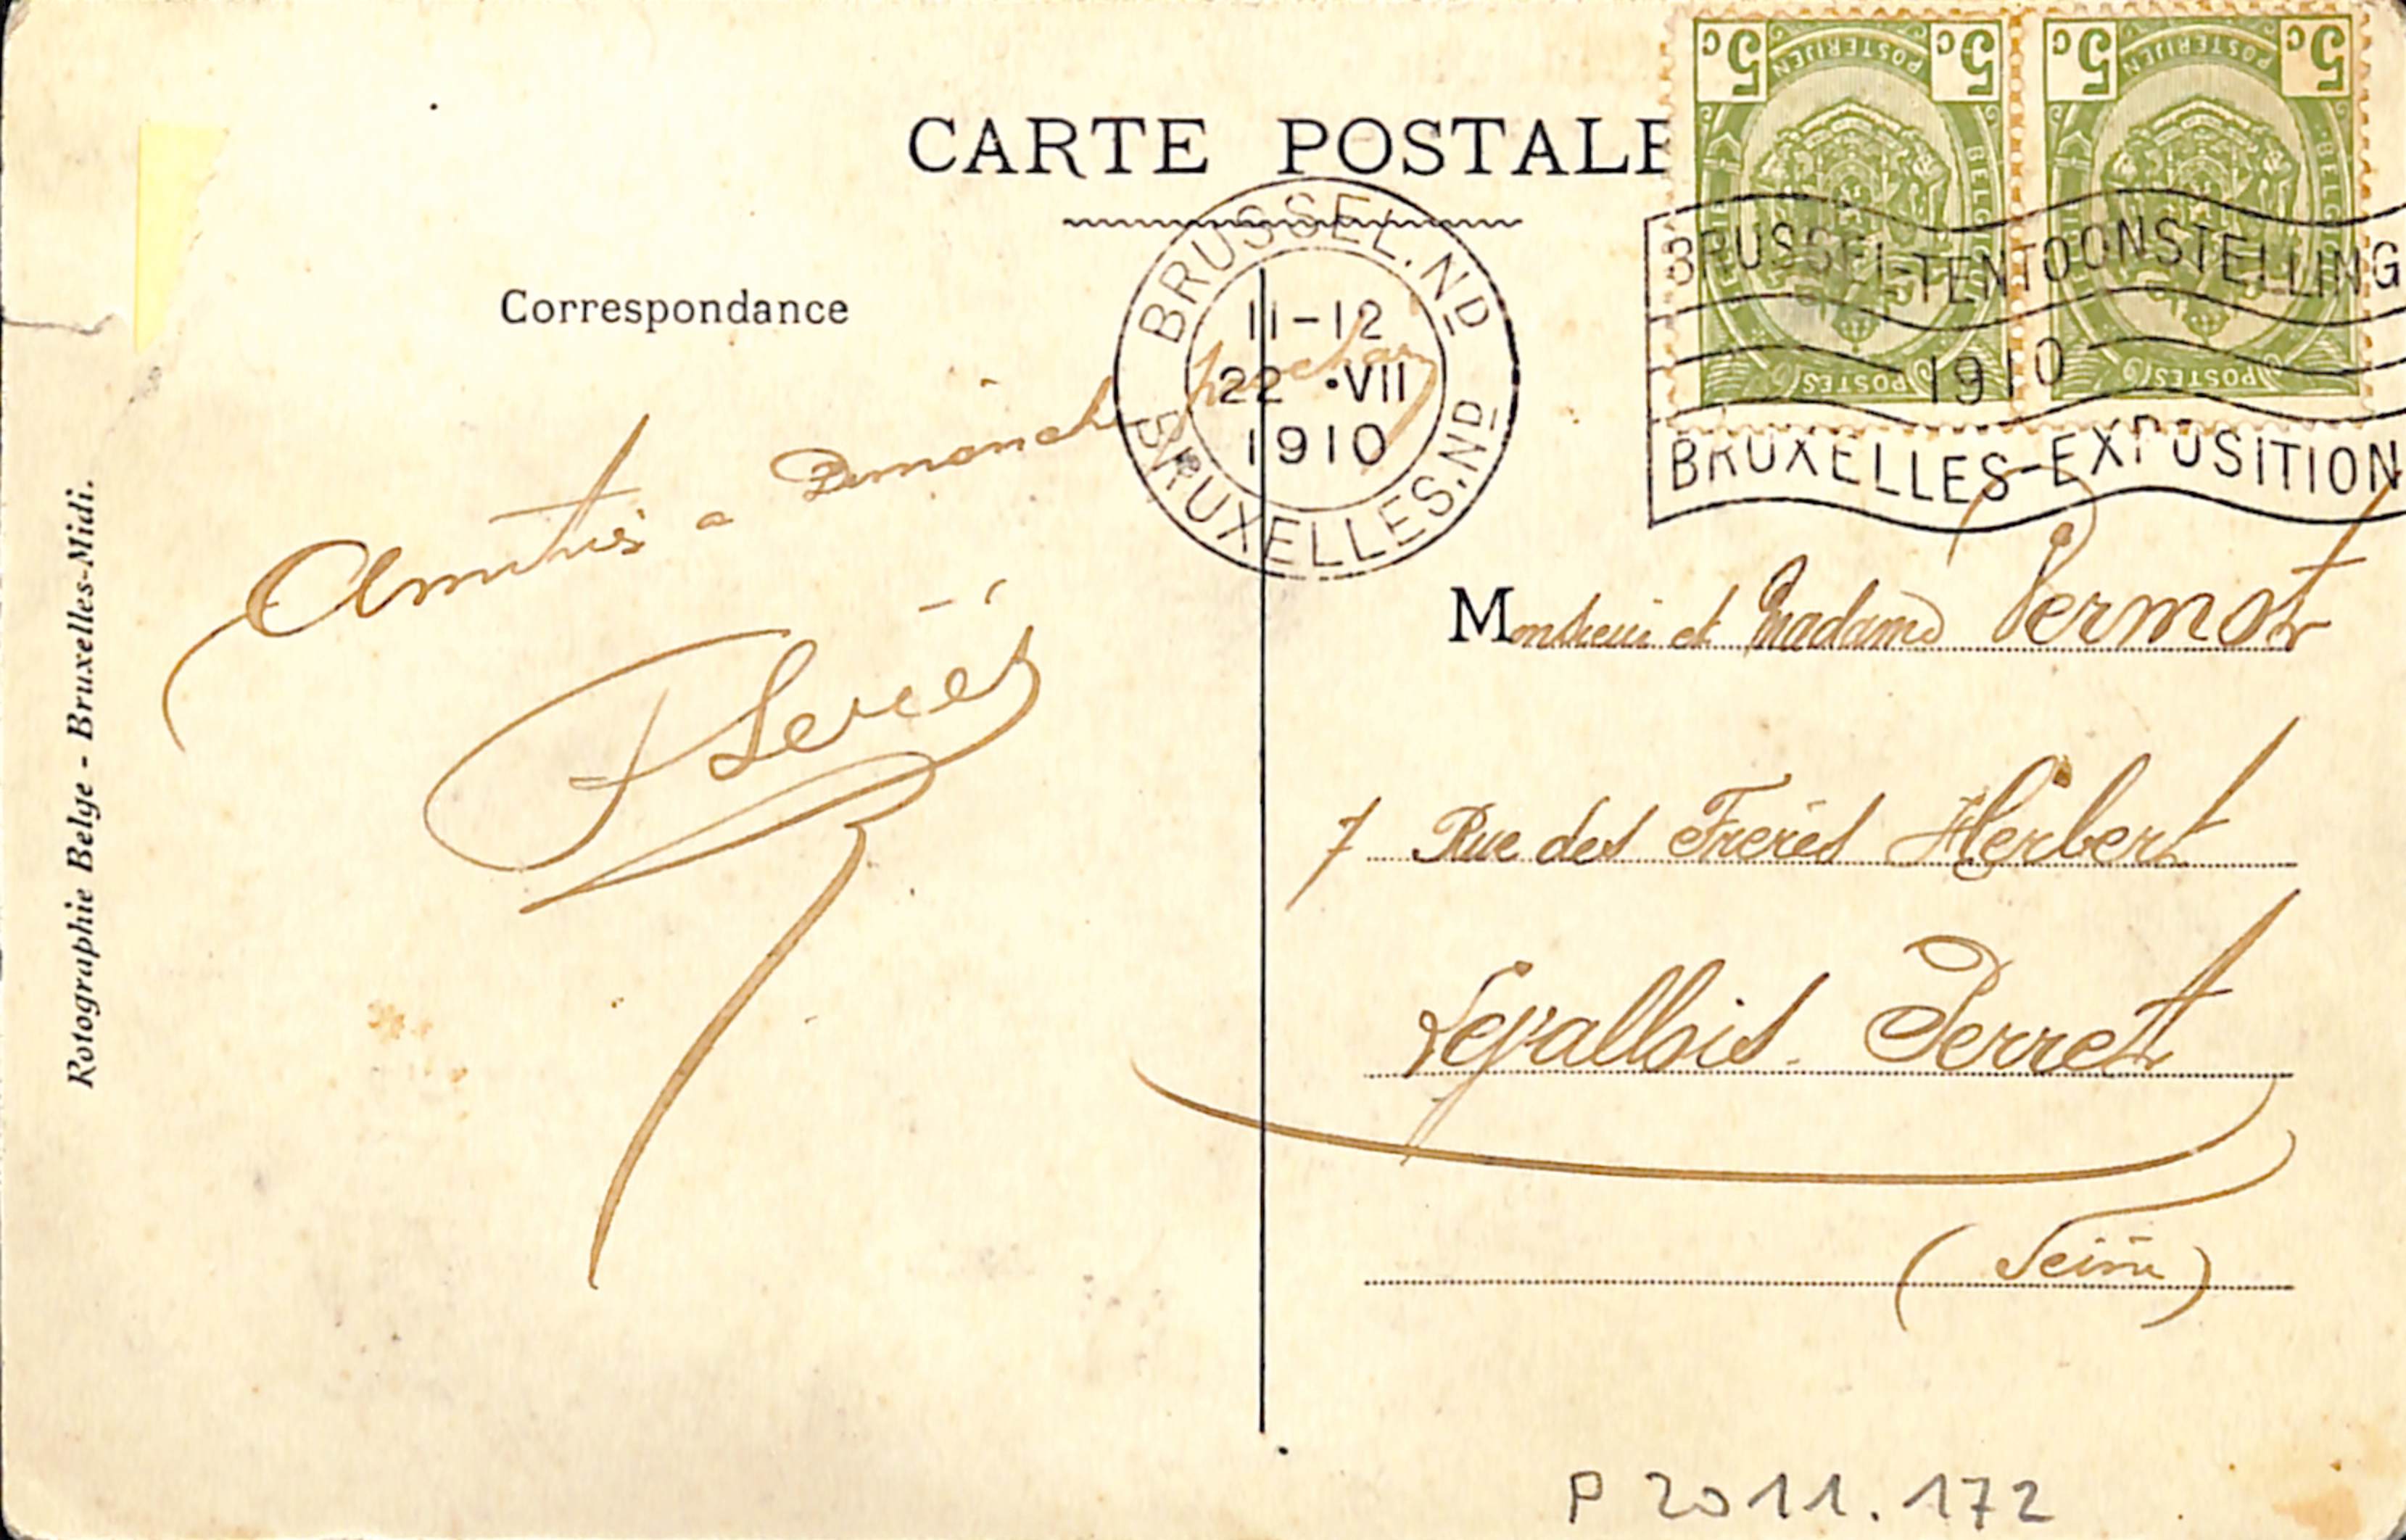 CARTE POSTALE
Correspondance
5c POSTERIJEN 5c 5c POSTERIJEN 5c
POSTES POSTES
BRUSSEL-TENTOONSTELLING
1910
BRUXELLES-EXPOSITION
BRUSSEL.ND
11-12
22 •VII
1910
BRUXELLES.ND
Amitiés a Dimanche prochain
Monsieur et Madame Vermot
7 Rue des Freres Herbert
Levallois Perret
(Seine)
Rotographie Belge - Bruxelles-Midi.
P 2011.172